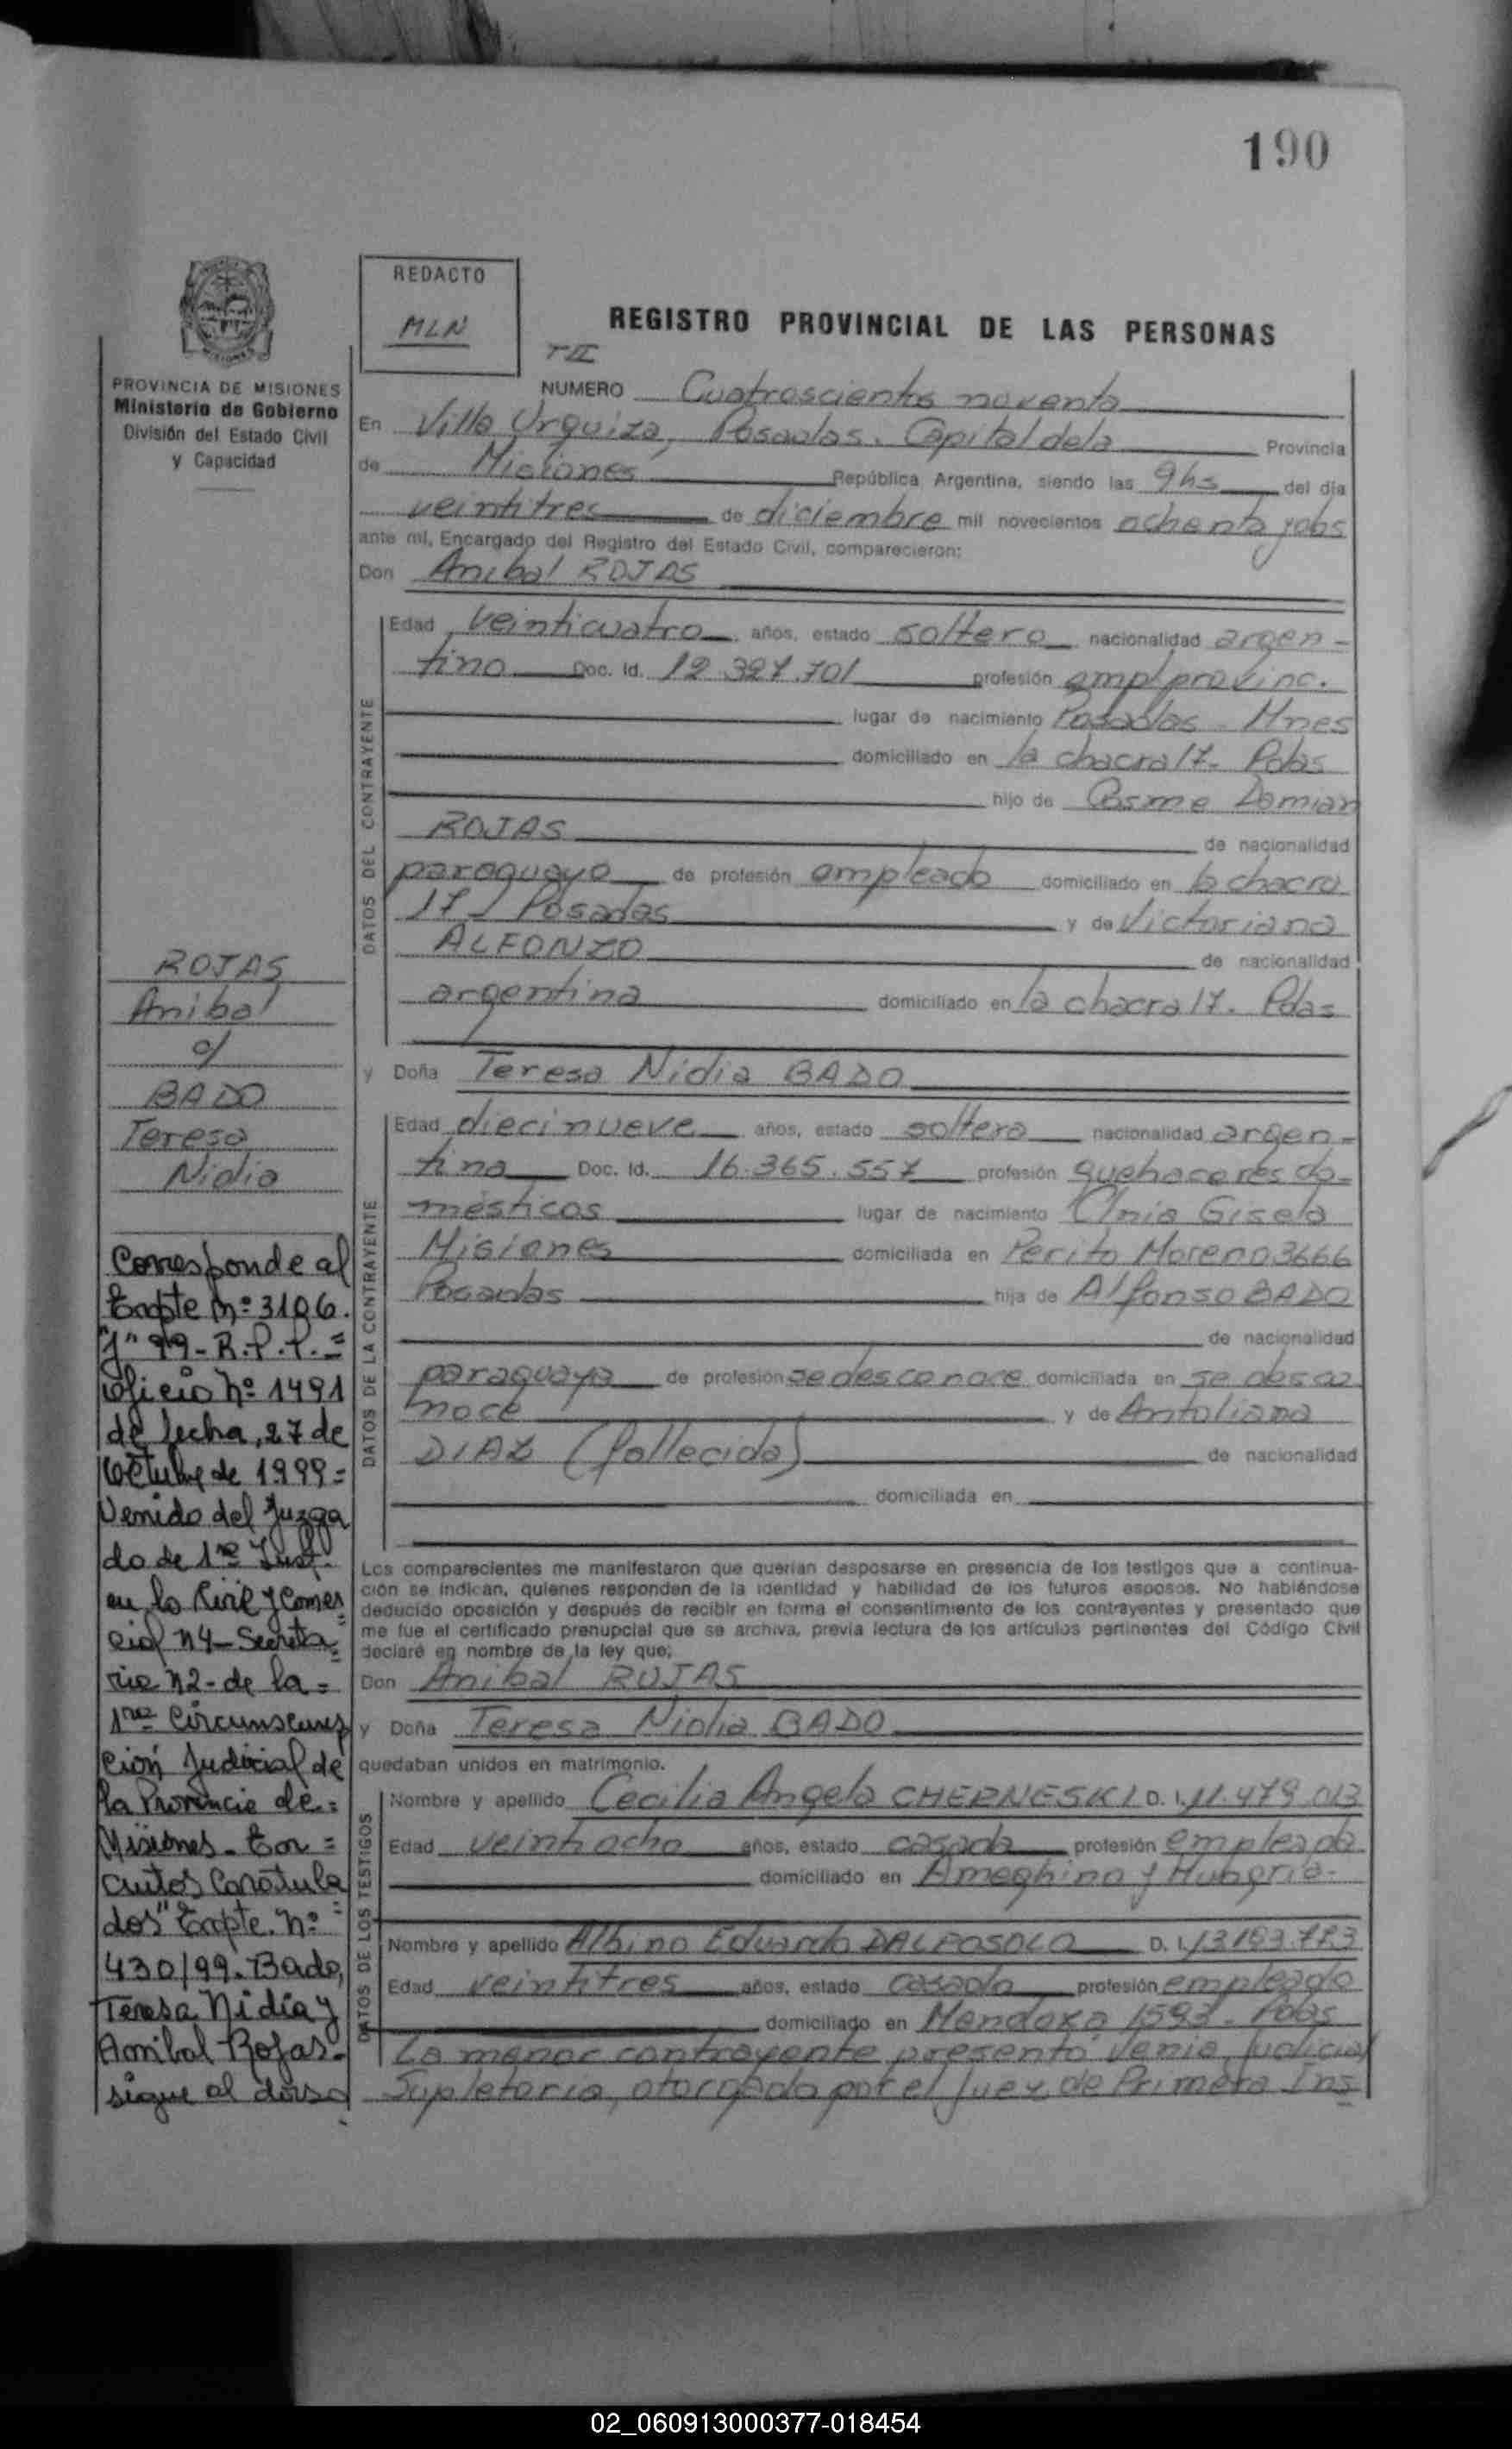 190
REDACTO
MLN
REGISTRO PROVINCIAL DE LAS PERSONAS
T II
PROVINCIA DE MISIONES
Ministerio de Gobierno
División del Estado Civil
y Capacidad
NUMERO Cuatroscientos noventa
En Villa Urquiza, Posadas. Capital de la Provincia
de Misiones República Argentina, siendo las 9hs del día
veintitres de diciembre mil novecientos ochenta y dos
ante mí, Encargado del Registro del Estado Civil, comparecieron:
Don Anibal ROJAS
DATOS DEL CONTRAYENTE
Edad veinticuatro años, estado soltero nacionalidad argen-
tino Doc. Id. 12.327.701 profesión empl provinc.
lugar de nacimiento Posadas - Mnes
domiciliado en la chacra 17. Pdas
hijo de Cosme Damian
ROJAS de nacionalidad
paraguayo de profesión empleado domiciliado en la chacra
17 - Posadas y de Victoriana
ALFONZO de nacionalidad
argentina domiciliado en la chacra 17. Pdas
y Doña Teresa Nidia BADO
DATOS DE LA CONTRAYENTE
Edad diecinueve años, estado soltera nacionalidad argen-
tina Doc. Id. 16.365.557 profesión quehaceres do-
mésticos lugar de nacimiento Clnia Gisela
Misiones domiciliada en Perito Moreno 3666
Posadas hija de Alfonso BADO
de nacionalidad
paraguaya de profesión se desconoce domiciliada en se desco
noce y de Antoliana
DIAZ (fallecida) de nacionalidad
domiciliada en
Los comparecientes me manifestaron que querían desposarse en presencia de los testigos que a continua-
ción se indican, quienes responden de la identidad y habilidad de los futuros esposos. No habiéndose
deducido oposición y después de recibir en forma el consentimiento de los contrayentes y presentado que
me fue el certificado prenupcial que se archiva, previa lectura de los artículos pertinentes del Código Civil
declaré en nombre de la ley que;
Don Anibal ROJAS
y Doña Teresa Nidia BADO
quedaban unidos en matrimonio.
DATOS DE LOS TESTIGOS
Nombre y apellido Cecilia Angela CHERNESKI D. I. 11.479.013
Edad veintiocho años, estado casada profesión empleada
domiciliado en Ameghino y Hungria.
Nombre y apellido Albino Eduardo DALPOSOLO D. I.
Edad veintitres años, estado casado profesión empleado
domiciliado en Mendoza 1593. Pdas
La menor contrayente presentó Venia Judicial
Supletoria, otorgada por el Juez de Primera Ins
ROJAS
Anibal
c/
BADO
Teresa
Nidia
Corresponde al
Expte nº 3106.
"J" 99 - R.P.P. =
Oficio Nº 1491
de fecha, 27 de
Octubre de 1999 =
Venido del Juzga
do de 1ra Inst.
en lo Civil y Comer
cial n4 - Secreta
ria n2 - de la =
1ra Circunscrip
ción Judicial de
la Provincia de =
Misiones - En =
autos Caratula
dos "Expte. Nº
430/99. Bado,
Teresa Nidia y
Anibal Rojas -
sigue al dorso
02_060913000377-018454